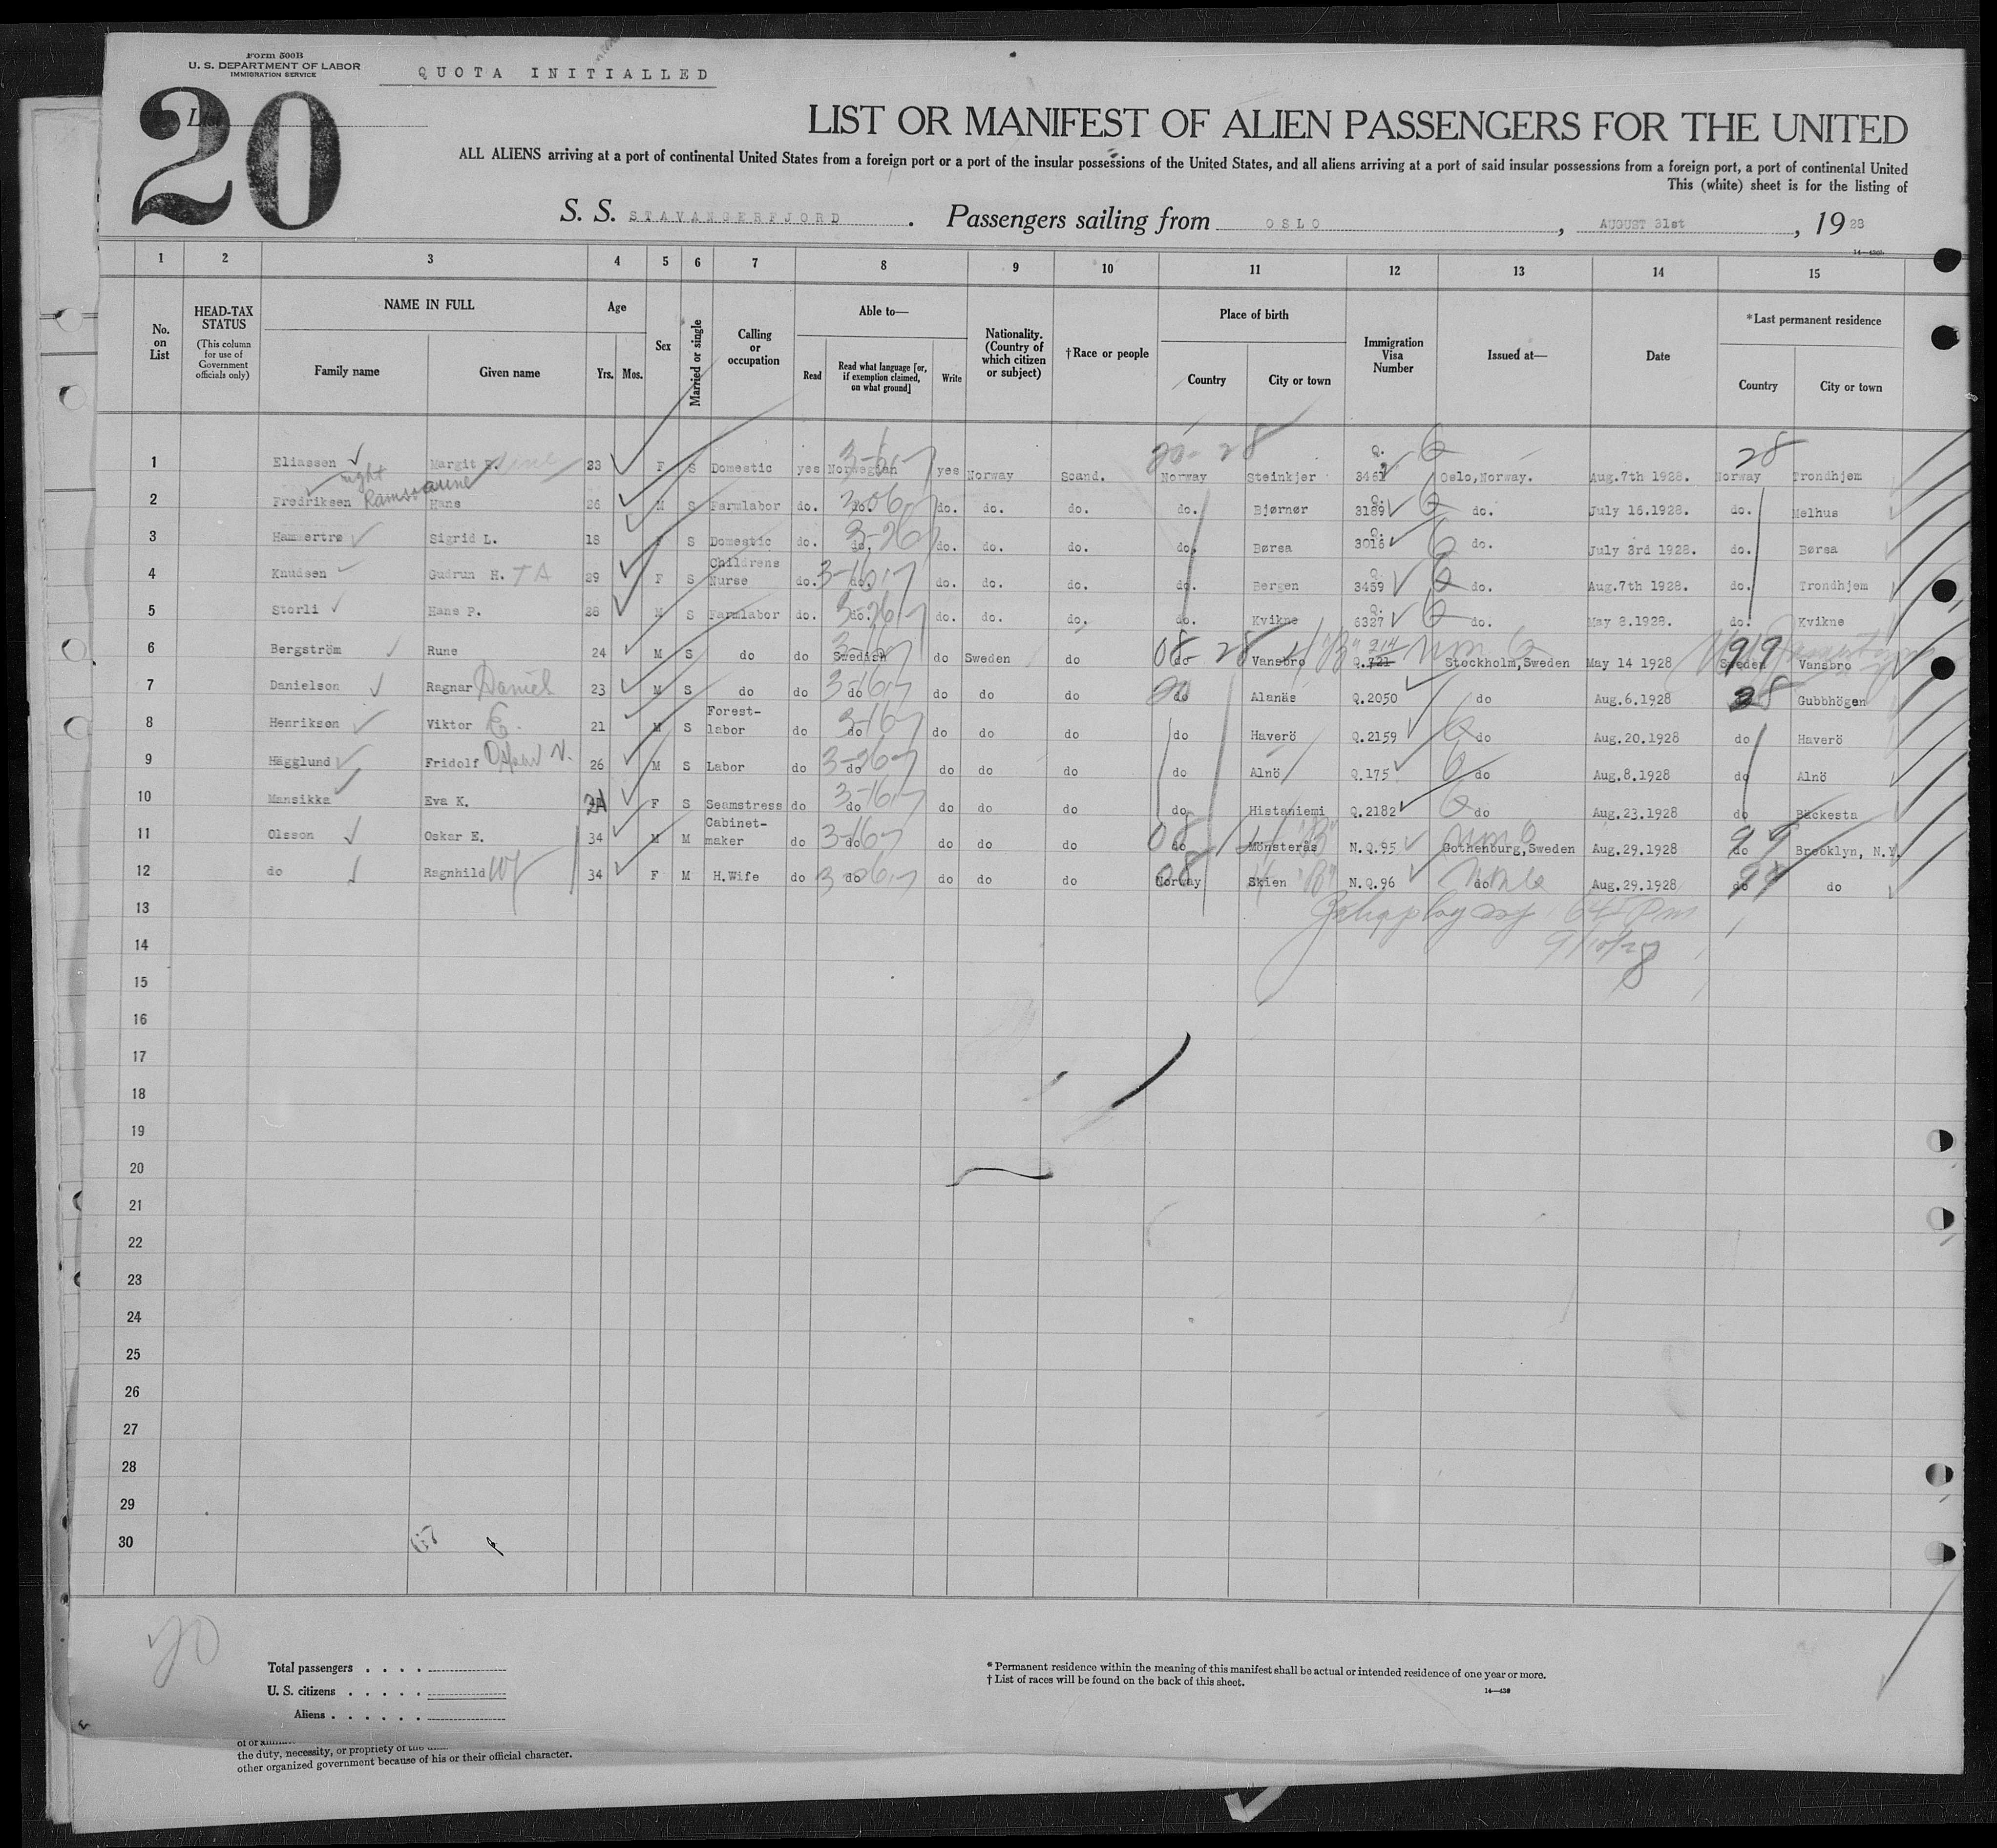 Form 500B
U. S. DEPARTMENT OF LABOR
IMMIGRATION SERVICE
QUOTA INITIALLED
List
20
LIST OR MANIFEST OF ALIEN PASSENGERS FOR THE UNITED
ALL ALIENS arriving at a port of continental United States from a foreign port or a port of the insular possessions of the United States, and all aliens arriving at a port of said insular possessions from a foreign port, a port of continental United
This (white) sheet is for the listing of
S. S. STAVANGERFJORD . Passengers sailing from OSLO , AUGUST 31st , 1928
1 2 3 4 5 6 7 8 9 10 11 12 13 14 15
No. on List
HEAD-TAX STATUS (This column for use of Government officials only)
NAME IN FULL
Family name Given name
Age
Yrs. Mos.
Sex
Married or single
Calling or occupation
Able to—
Read
Read what language [or, if exemption claimed, on what ground]
Write
Nationality. (Country of which citizen or subject)
†Race or people
Place of birth
Country City or town
Immigration Visa Number
Issued at—
Date
*Last permanent residence
Country City or town
20-28 28
1 Eliassen Margit 23 F S Domestic yes Norwegian yes Norway Scand. Norway Steinkjer Q. Oslo,Norway. Aug.7th 1928. Norway Trondhjem
right
2 Fredriksen Hans 26 M S Farmlabor do. do. do. do. do. do. Bjørnør Q. 3189 do. July 16.1928. do. Melhus
3 Hammertrø Sigrid L. 18 F S Domestic do. do. do. do. do. do. Børsa Q. 3016 do. July 3rd 1928. do. Børsa
4 Knudsen Gudrun H. 29 F S Childrens Nurse do. do. do. do. do. do. Bergen Q. 3459 do. Aug.7th 1928. do. Trondhjem
5 Storli Hans P. 28 M S Farmlabor do. do. do. do. do. do. Kvikne Q. 6327 do. May 8.1928. do. Kvikne
6 Bergström Rune 24 M S do do Swedish do Sweden do do Vansbro Q.721 214 Stockholm,Sweden May 14 1928 Sweden Vansbro
7 Danielson Ragnar Daniel 23 M S do do do do do do do Alanäs Q.2050 do Aug.6.1928 28 Gubbhögen
8 Henrikson Viktor E. 21 M S Forest-labor do do do do do do Haverö Q.2159 do Aug.20.1928 do Haverö
9 Hägglund Fridolf 26 M S Labor do do do do do do Alnö Q.175 do Aug.8.1928 do Alnö
10 Mansikka Eva K. F S Seamstress do do do do do do Histaniemi Q.2182 do Aug.23.1928 do Bäckesta
11 Olsson Oskar E. 34 M M Cabinet-maker do do do do do do Mönsterås N.Q.95 Gothenburg,Sweden Aug.29.1928 do Brooklyn, N.Y.
12 do Ragnhild Wf 34 F M H.Wife do do do do do Norway Skien N.Q.96 do Aug.29.1928 do do
13
9/10/28
14
15
16
17
18
19
20
21
22
23
24
25
26
27
28
29
30
20
Total passengers . . . .
U. S. citizens . . . . .
Aliens . . . . . .
* Permanent residence within the meaning of this manifest shall be actual or intended residence of one year or more.
† List of races will be found on the back of this sheet.
14—430
the duty, necessity, or propriety of the
other organized government because of his or their official character.